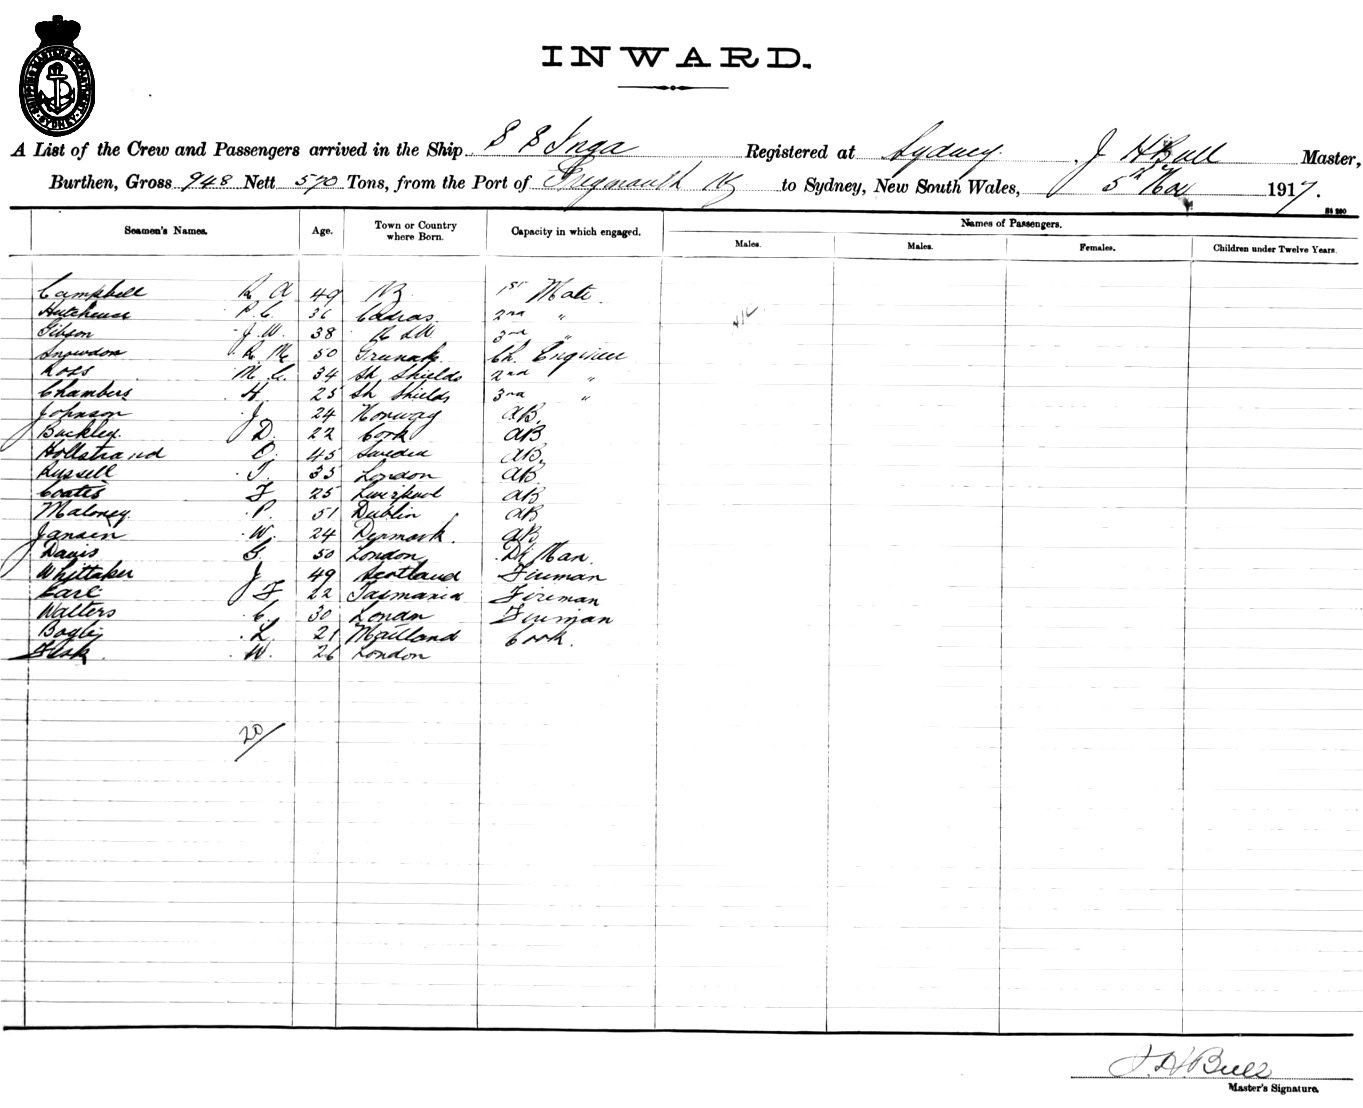 SHIPPING MASTERS DEPARTMENT SYDNEY
INWARD.
A List of the Crew and Passengers arrived in the Ship S S Inga Registered at Sydney J H Bull Master,
Burthen, Gross 948 Nett 570 Tons, from the Port of Greymouth NZ to Sydney, New South Wales, 5th Nov 1917.
Seamen's Names. Age. Town or Country where Born. Capacity in which engaged. Names of Passengers.
Males. Males. Females. Children under Twelve Years.
Campbell R A 49 NZ 1st Mate
Hutcheson R. C. 36 2nd "
Gibson J. W. 38 N S W 3rd "
Snowdon R Mc 50 Greenock Ch. Engineer
Ross M. C. 34 Sth Shields 2nd "
Chambers H. 25 Sth Shields 3rd "
Johnson J. 24 Norway AB.
Buckley. D. 22 Cork AB
Hollstrand O. 45 Sweden AB.
Russell T. 35 London AB.
Coates F 25 Liverpool AB
Maloney. P. 51 Dublin AB
Jansen W. 24 Denmark. AB
Davis G. 50 London Dk Man.
Whittaker J 49 Scotland Fireman
Earl F 22 Tasmania Fireman
Walters C. 30 London Fireman
Bagley L. 21 Maitland Cook.
W. 26 London
20/
J. H. Bull
Master's Signature.